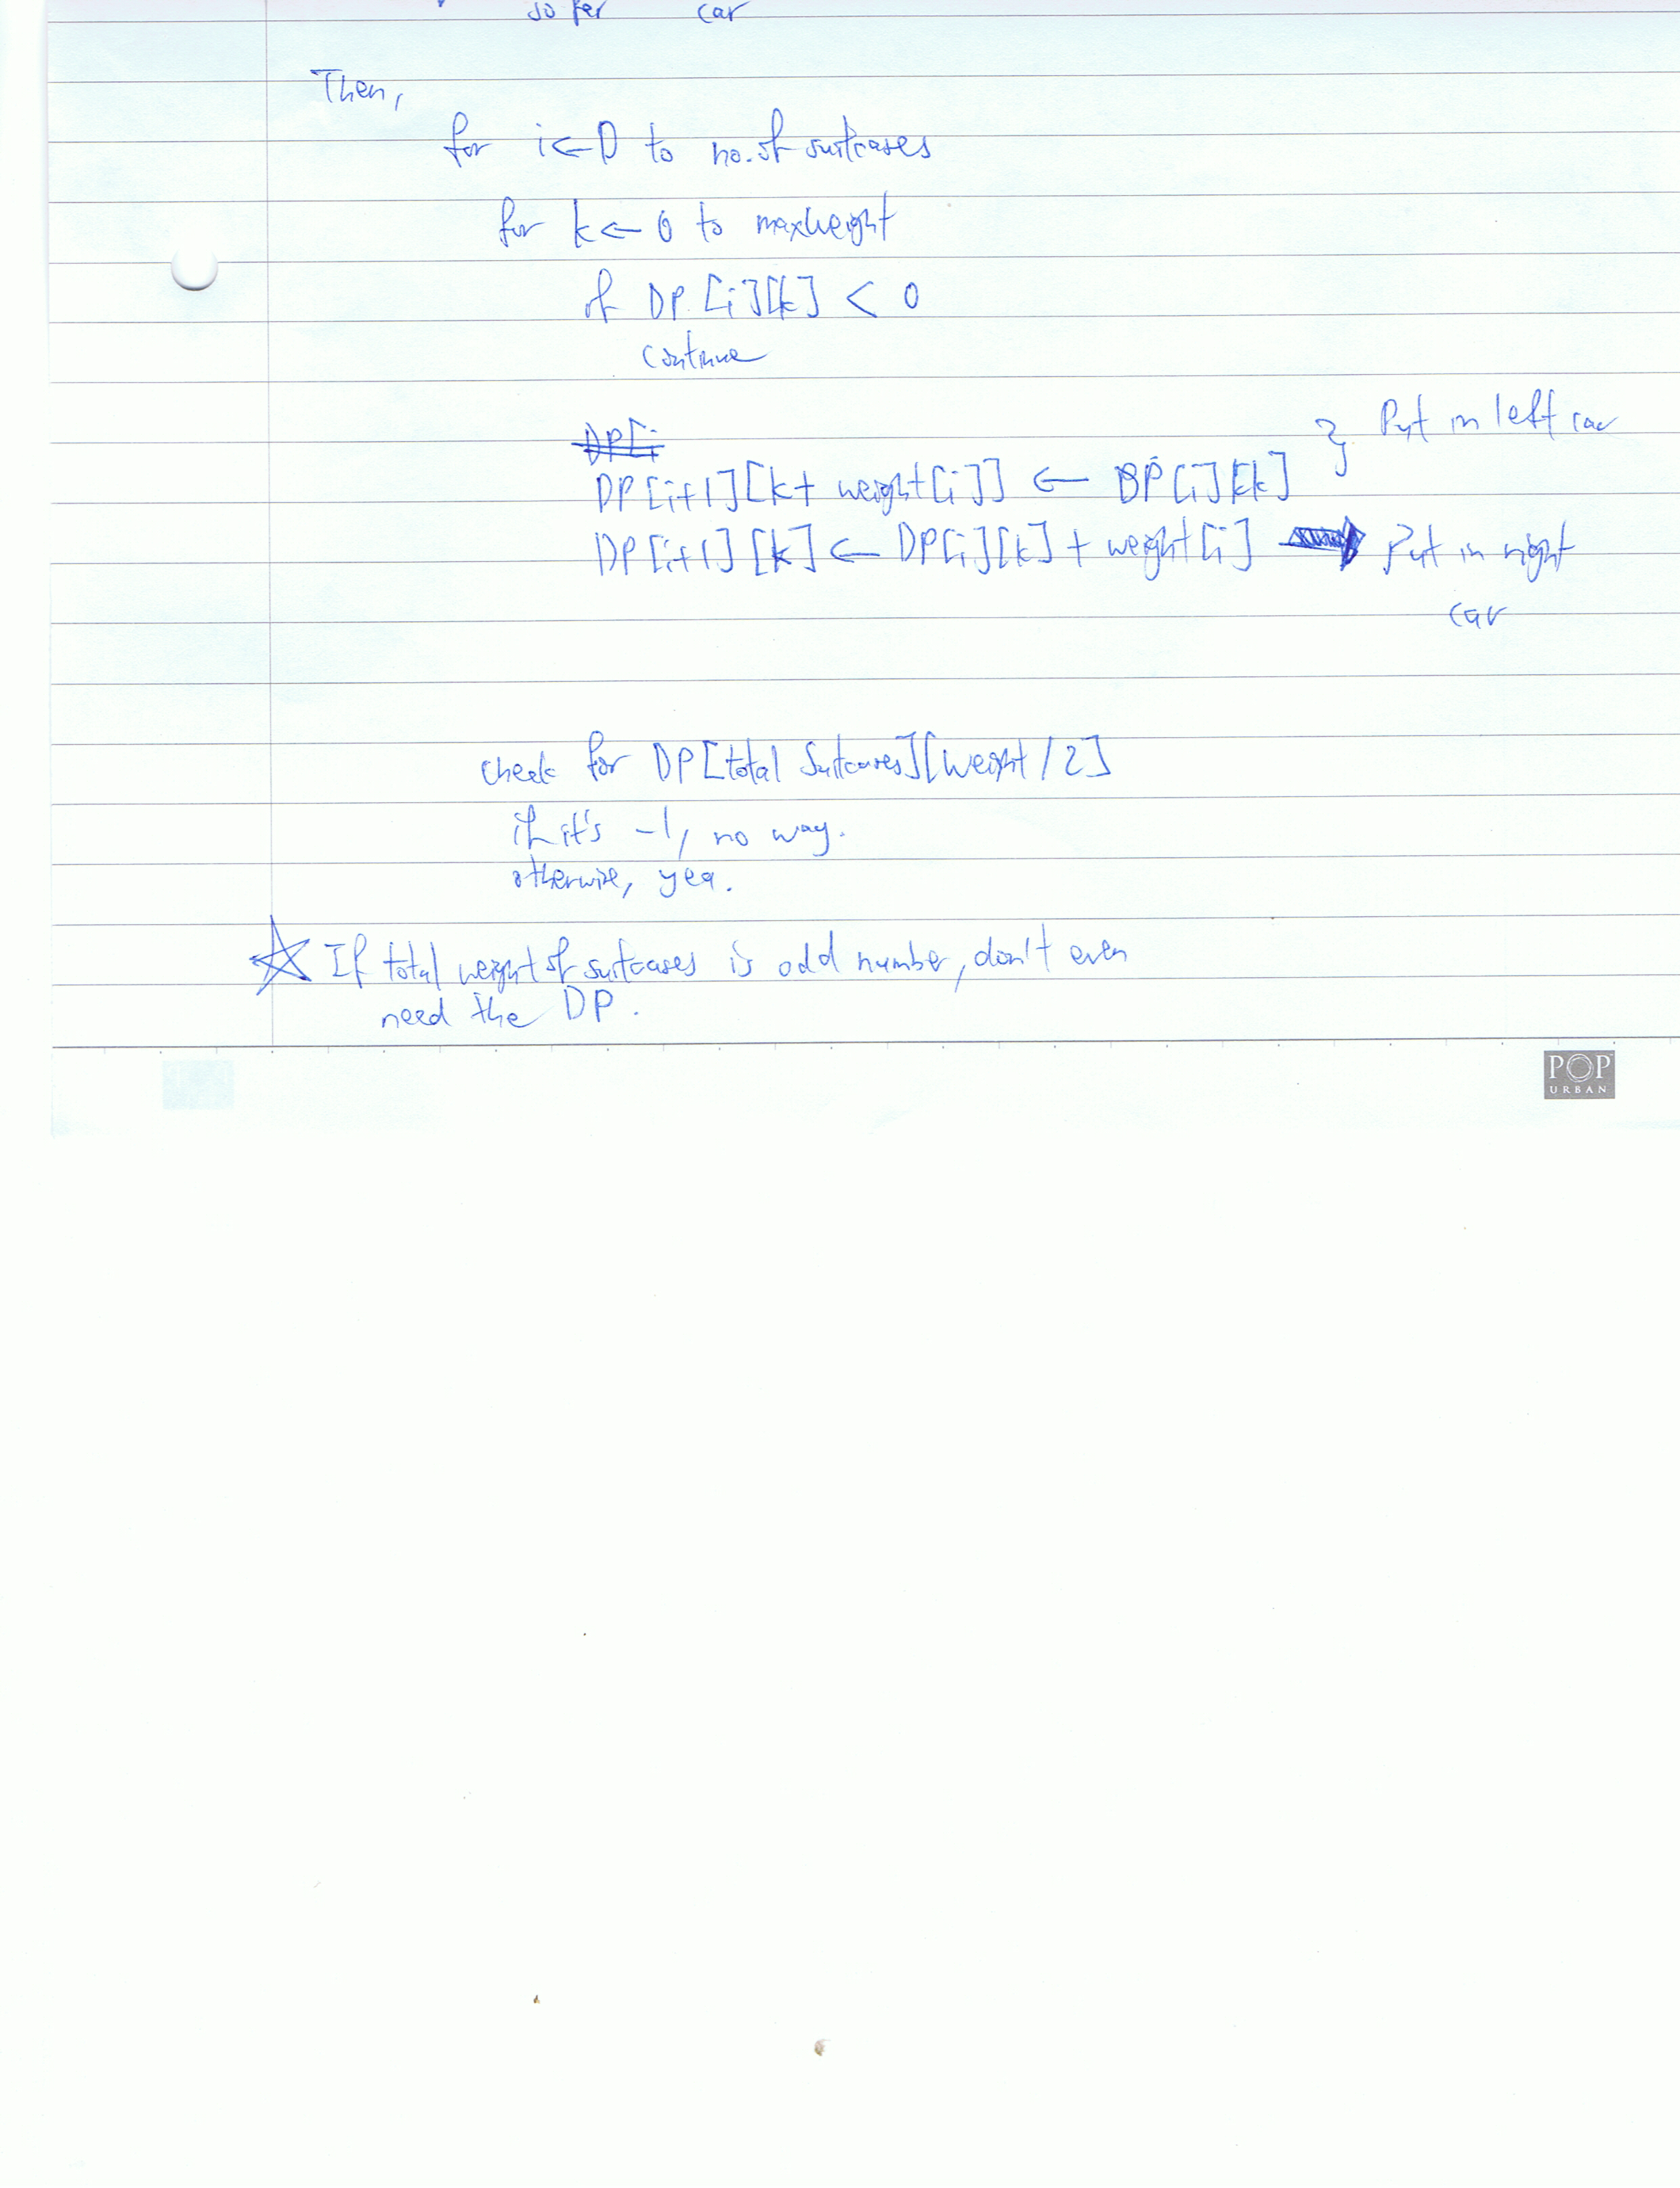 so far car
Then,
for i ← 0 to no. of suitcases
for k ← 0 to maxweight
if DP[i][k] < 0
continue
DP[i
} Put in left car
DP[i+1][k + weight[i]] ← DP[i][k]
DP[i+1][k] ← DP[i][k] + weight[i] → Put in right
car
check for DP[total Suitcases][weight/2]
if it's -1, no way.
otherwise, yea.
☆ If total weight of suitcases is odd number, don't even
need the DP.
POP
URBAN